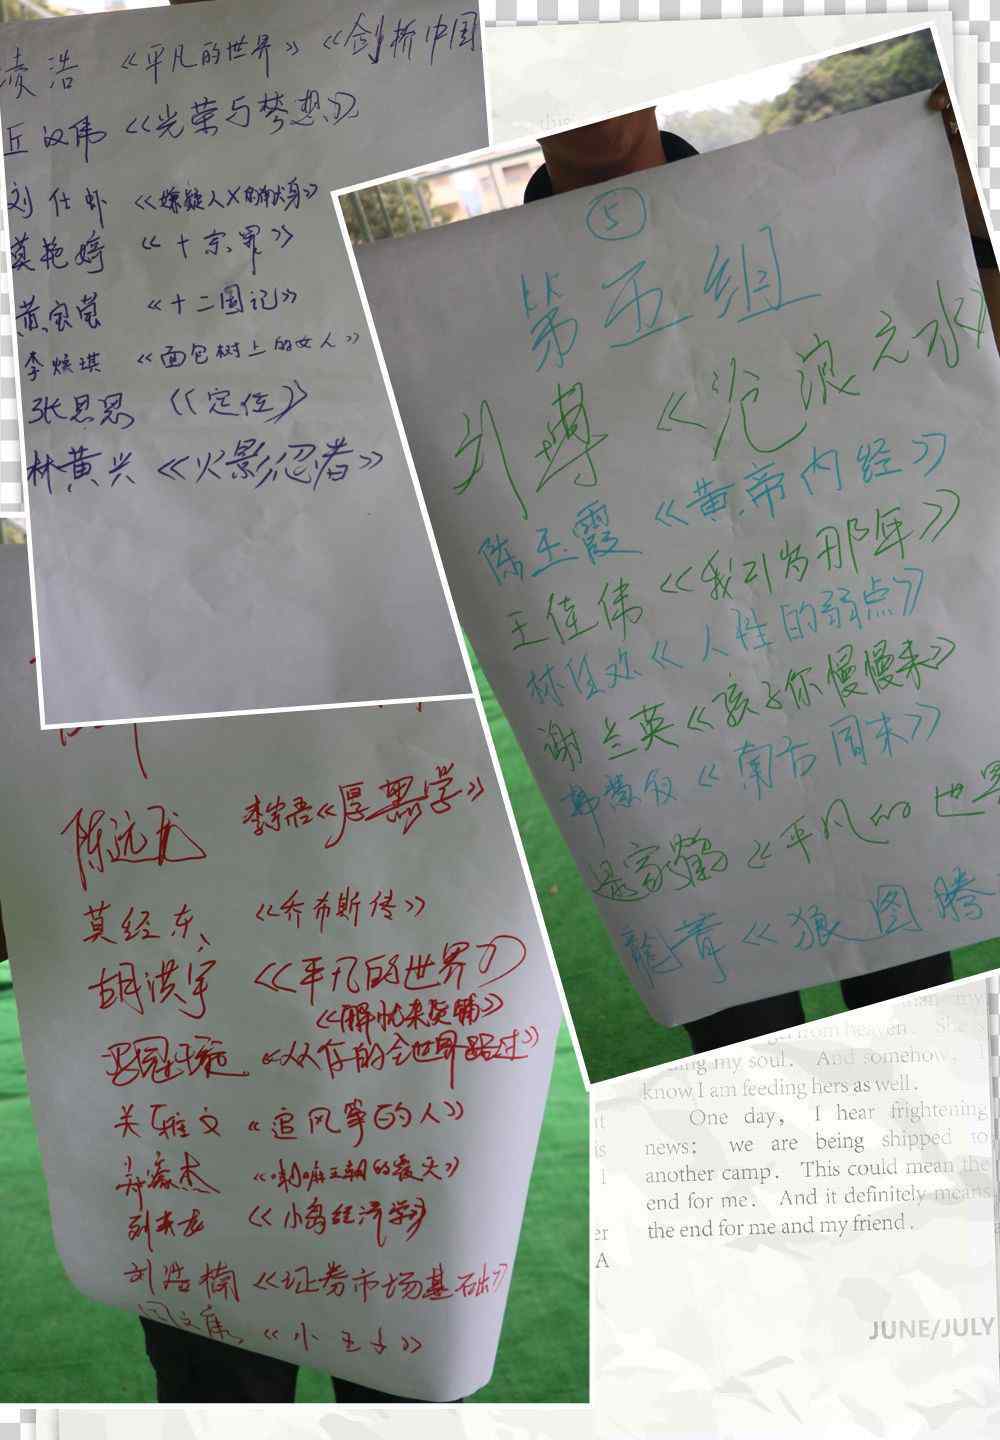 凌浩 《平凡的世界》《剑桥中国
丘汉伟 《光荣与梦想》
刘仕虾 《嫌疑人X的献身》
莫艳婷 《十宗罪》
黄宝莹 《十二国记》
李嫔琪 《面包树上的女人》
张思恩 《定位》
林黄兴 《火影忍者》
5
第五组
《沧浪之水》
陈玉霞 《黄帝内经》
王佳伟 《我引为那年》
《人性的弱点》
谢兰英 《孩子你慢慢来》
《南方周末》
《平凡的世界
龍菁 《狼图腾
陈远龙 李宗吾《厚黑学》
莫经东 《乔布斯传》
胡洪宇 《平凡的世界》
《解忧杂货铺》
《从你的全世界路过》
关雅文 《追风筝的人》
《小岛经济学》
刘浩楠 《证券市场基础》
《小王子》
than my
from heaven. She
ing my soul. And somehow, I
know I am feeding hers as well.
One day, I hear frightening
news: we are being shipped to
another camp. This could mean the
end for me. And it definitely means
the end for me and my friend.
JUNE/JULY